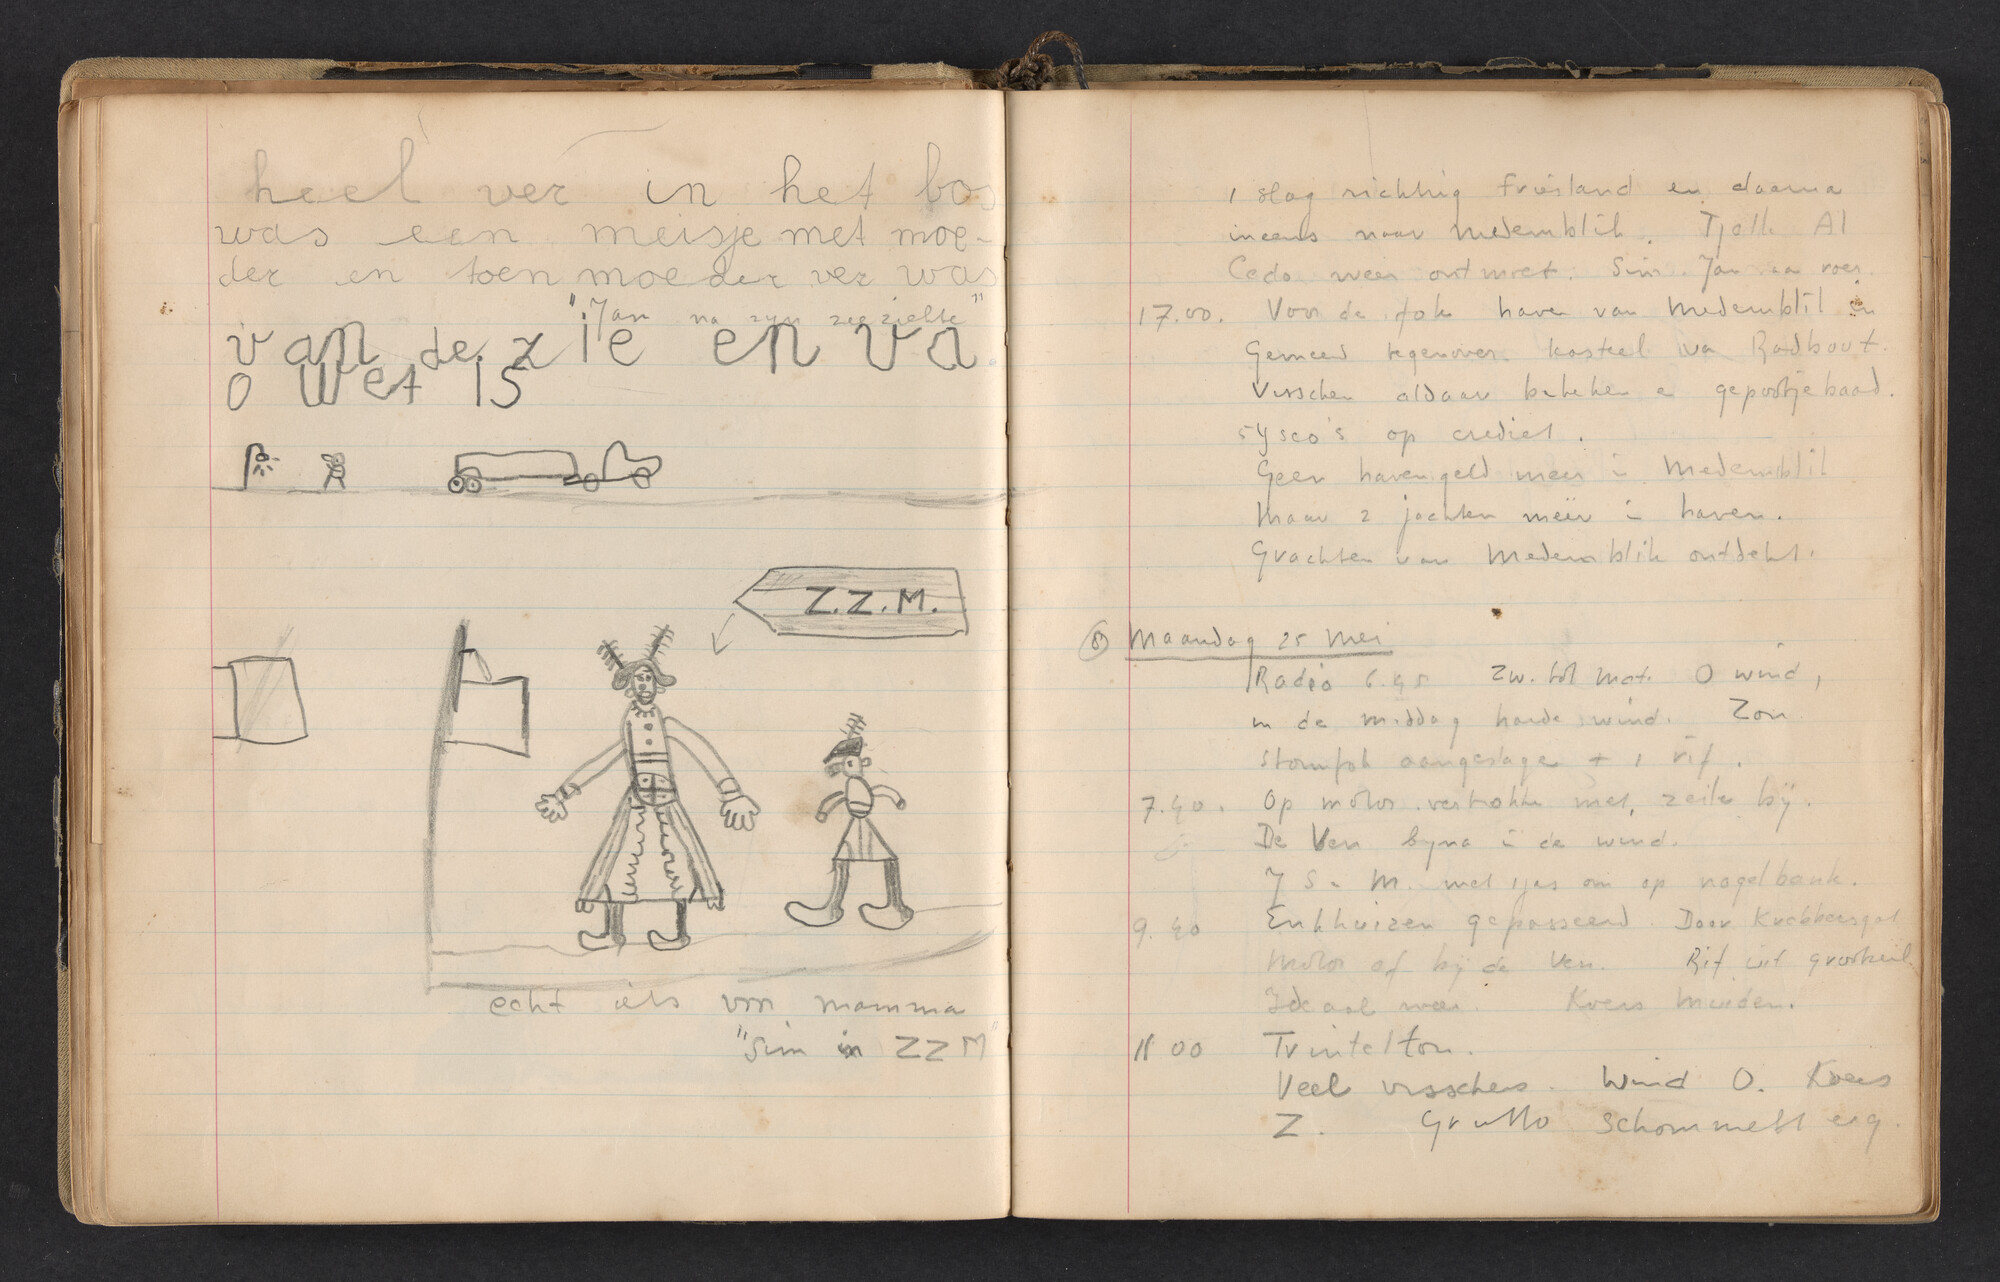 heel ver in het bos
was een meisje met moe-
der en toen moeder ver was
"Jan na zijn zeeziekte"
van de zie en va
o wet is
Z.Z.M.
echt iets von mamma
"Sim in ZZM"
1 slag richting Friesland en daarna
ineens naar Medemblik. Tjalk Al
Cedo weer ontmoet. Sim Jan aa roer.
17.00. Voor de fok haven van Medemblik in
Gemeerd tegenover kasteel va Radbout.
Visschen aldaar bekeken e gepootjebaad.
op crediet.
Geen havengeld meer i Medemblik
Maar 2 jachten meer i haven.
Grachten van Medemblik ontdekt.
8 Maandag 25 Mei
Radio 6.45 Zw. tot mat. O wind,
in de middag harde wind. Zon
stormfok aangeslage + 1 rif.
7.40. Op motor vertrokke met zeile bij.
De Ven byna i de wind.
J S. M. met om op nagelbank.
9.40 Enkhuizen gepasseerd. Door Krabbersgat
Motor af bij de Ven. Rif uit grootzeil
Ideaal weer. Koers Muiden.
11 00 Trintelton.
Veel visschers. Wind O. Koers
Z. Grutto schommelt erg.